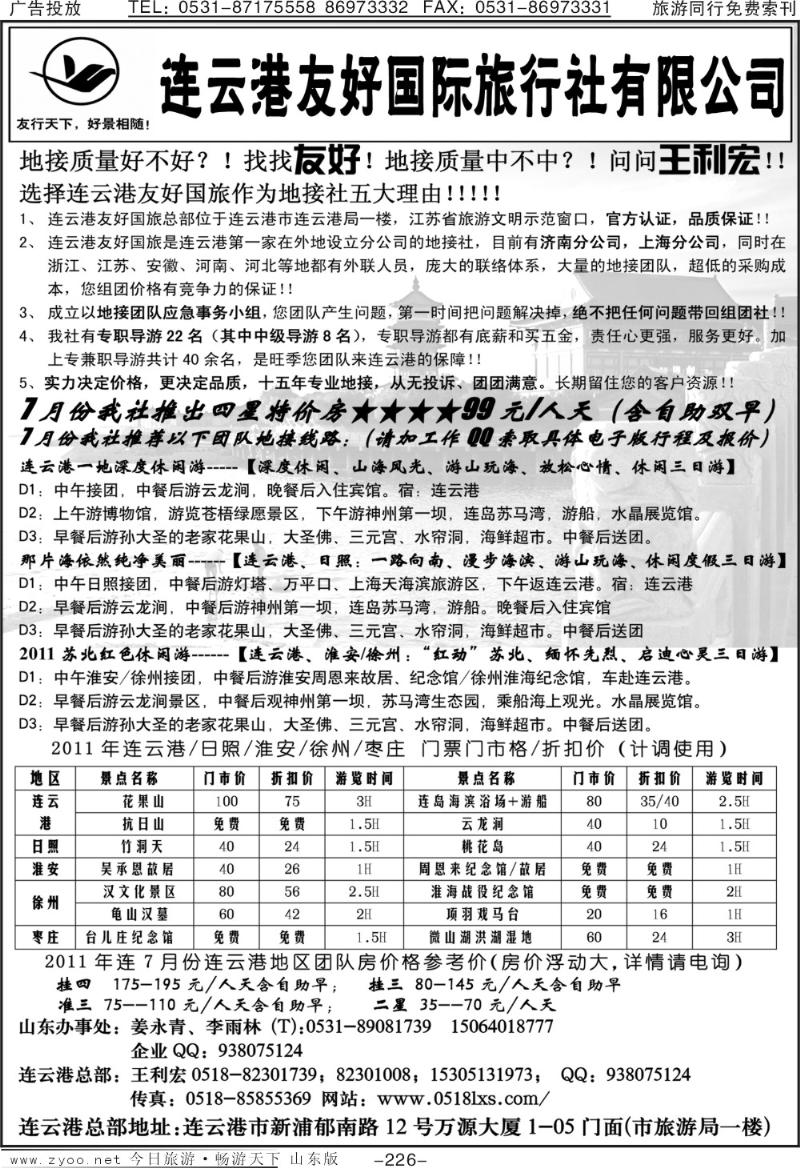 广告投放 TEL: 0531-87175558 86973332 FAX: 0531-86973331 旅游同行免费索刊
连云港友好国际旅行社有限公司
友行天下，好景相随!
地接质量好不好？！找找友好！地接质量中不中？！问问王利宏!!
选择连云港友好国旅作为地接社五大理由!!!!!
1、 连云港友好国旅总部位于连云港市连云港局一楼，江苏省旅游文明示范窗口，官方认证，品质保证!!
2、 连云港友好国旅是连云港第一家在外地设立分公司的地接社，目前有济南分公司，上海分公司，同时在
浙江、江苏、安徽、河南、河北等地都有外联人员，庞大的联络体系，大量的地接团队，超低的采购成
本，您组团价格有竞争力的保证!!
3、 成立以地接团队应急事务小组,您团队产生问题,第一时间把问题解决掉,绝不把任何问题带回组团社!!
4、 我社有专职导游 22 名（其中中级导游 8 名），专职导游都有底薪和买五金，责任心更强，服务更好。加
上专兼职导游共计 40 余名，是旺季您团队来连云港的保障!!
5、实力决定价格，更决定品质，十五年专业地接，从无投诉、团团满意。长期留住您的客户资源!!
7月份我社推出四星特价房★★★★99 元/人天（含自助双早）
7月份我社推荐以下团队地接线路：（请加工作 QQ 索取具体电子版行程及报价）
连云港一地深度休闲游-----【深度休闲、山海风光、游山玩海、放松心情、休闲三日游】
D1：中午接团，中餐后游云龙涧，晚餐后入住宾馆。宿：连云港
D2：上午游博物馆，游览苍梧绿愿景区，下午游神州第一坝，连岛苏马湾，游船，水晶展览馆。
D3：早餐后游孙大圣的老家花果山，大圣佛、三元宫、水帘洞，海鲜超市。中餐后送团。
那片海依然纯净美丽-----【连云港、日照：一路向南、漫步海滨、游山玩海、休闲度假三日游】
D1：中午日照接团，中餐后游灯塔、万平口、上海天海滨旅游区，下午返连云港。宿：连云港
D2：早餐后游云龙涧，中餐后游神州第一坝，连岛苏马湾，游船。晚餐后入住宾馆
D3：早餐后游孙大圣的老家花果山，大圣佛、三元宫、水帘洞，海鲜超市。中餐后送团
2011 苏北红色休闲游------【连云港、淮安/徐州：“红动”苏北、缅怀先烈、启迪心灵三日游】
D1：中午淮安/徐州接团，中餐后游淮安周恩来故居、纪念馆/徐州淮海纪念馆，车赴连云港。
D2：早餐后游云龙涧景区，中餐后观神州第一坝，苏马湾生态园，乘船海上观光。水晶展览馆。
D3：早餐后游孙大圣的老家花果山，大圣佛、三元宫、水帘洞，海鲜超市。中餐后送团。
2011 年连云港/日照/淮安/徐州/枣庄 门票门市格/折扣价（计调使用）
地区 景点名称 门市价 折扣价 游览时间 景点名称 门市价 折扣价 游览时间
连云港 花果山 100 75 3H 连岛海滨浴场+游船 80 35/40 2.5H
抗日山 免费 免费 1.5H 云龙涧 40 10 1.5H
日照 竹洞天 40 24 1.5H 桃花岛 40 24 1.5H
淮安 吴承恩故居 40 26 1H 周恩来纪念馆/故居 免费 免费 1H
徐州 汉文化景区 80 56 2.5H 淮海战役纪念馆 免费 免费 2H
龟山汉墓 60 42 2H 项羽戏马台 20 16 1H
枣庄 台儿庄纪念馆 免费 免费 1.5H 微山湖洪湖湿地 60 24 3H
2011 年连 7 月份连云港地区团队房价格参考价(房价浮动大,详情请电询)
挂四 175-195 元/人天含自助早； 挂三 80-145 元/人天含自助早
准三 75--110 元/人天含自助早； 二星 35--70 元/人天
山东办事处：姜永青、李雨林 (T):0531-89081739 15064018777
企业 QQ：938075124
连云港总部：王利宏 0518-82301739；82301008；15305131973； QQ：938075124
传真：0518-85855369 网站：www.0518lxs.com/
连云港总部地址:连云港市新浦郁南路 12 号万源大厦 1-05 门面(市旅游局一楼)
www.zyoo.net 今日旅游·畅游天下 山东版 -226-